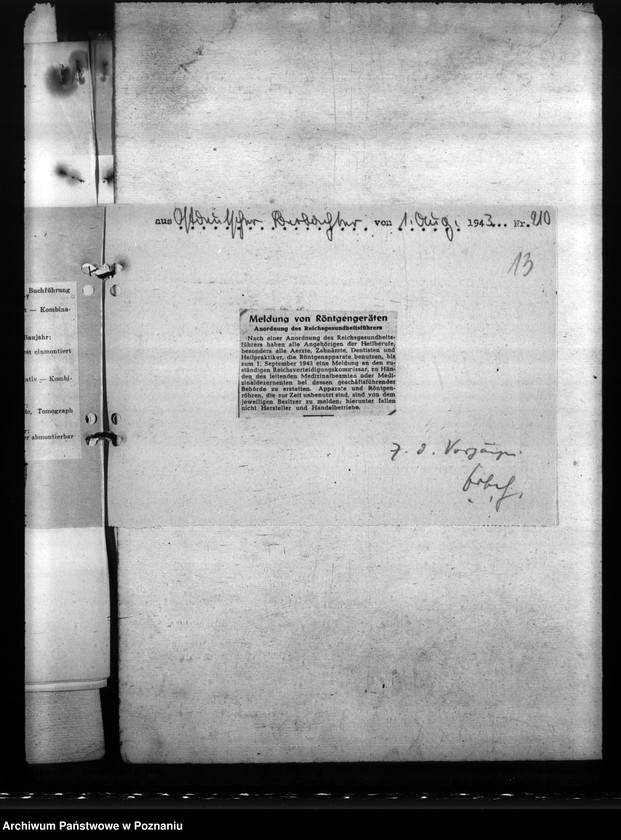 aus Ostdeutscher Beobachter von 1. Aug. 1943... Nr. 210
13
Meldung von Röntgengeräten
Anordnung des Reichsgesundheitsführers
Nach einer Anordnung des Reichsgesundheits-
führers haben alle Angehörigen der Heilberufe,
besonders alle Aerzte, Zahnärzte, Dentisten und
Heilpraktiker, die Röntgenapparate benutzen, bis
zum 1. September 1943 eine Meldung an den zu-
ständigen Reichsverteidigungskommissar, zu Hän-
den des leitenden Medizinalbeamten oder Medi-
zinaldezernenten bei dessen geschäftsführender
Behörde zu erstatten. Apparate und Röntgen-
röhren, die zur Zeit unbenutzt sind, sind von dem
jeweiligen Besitzer zu melden; hierunter fallen
nicht Hersteller und Handelbetriebe.
z. d. Vorgängen.
Buchführung
— Kombina-
Baujahr:
st einmontiert
ativ — Kombi-
Tomograph
r abmontierbar
Archiwum Państwowe w Poznaniu